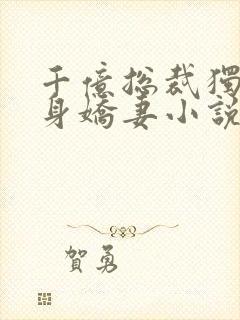 千億總裁獨
身嬌妻小說
賀勇